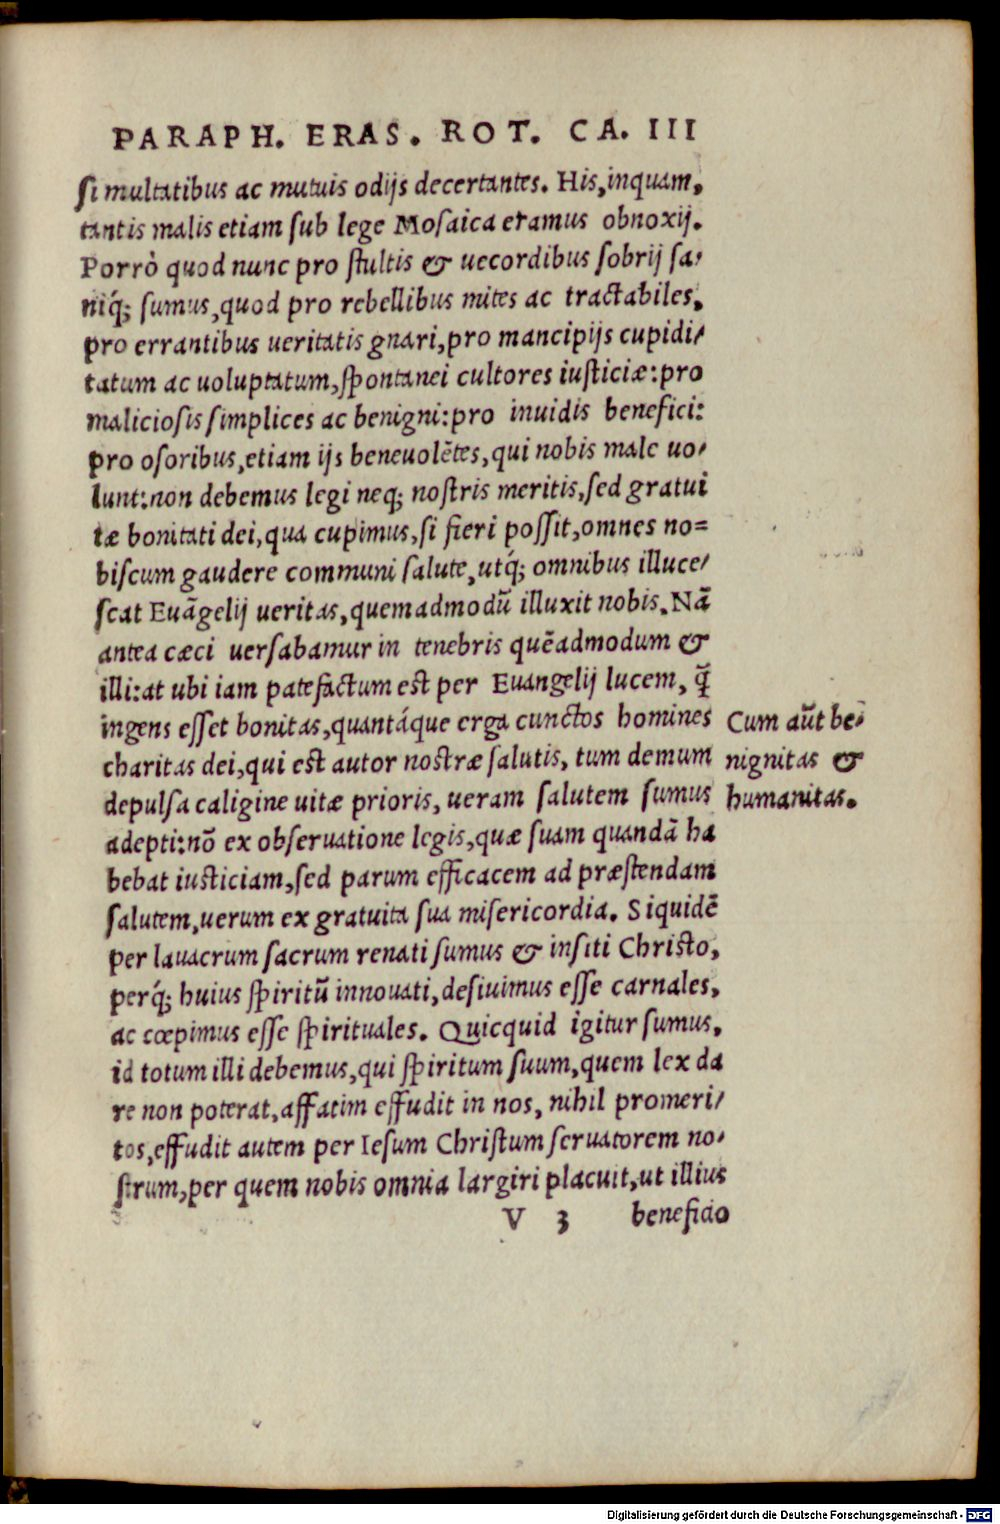 PARAPH. ERAS. ROT. CA. III
ſi multatibus ac mutuis odijs decertantes. His, inquam,
tantis malis etiam ſub lege Moſaica eramus obnoxij.
Porrò quod nunc pro ſtultis & uecordibus ſobrij ſa/
niq́; ſumus, quod pro rebellibus mites ac tractabiles,
pro errantibus ueritatis gnari, pro mancipijs cupidi/
tatum ac uoluptatum, ſpontanei cultores iuſticiæ: pro
malicioſis ſimplices ac benigni: pro inuidis benefici:
pro oſoribus, etiam ijs beneuolētes, qui nobis male uo/
lunt: non debemus legi neq; noſtris meritis, ſed gratui
tæ bonitati dei, qua cupimus, ſi fieri poſſit, omnes no=
biſcum gaudere communi ſalute, utq́; omnibus illuce/
ſcat Euāgelij ueritas, quemadmodū illuxit nobis. Nā
antea cæci uerſabamur in tenebris quēadmodum &
illi: at ubi iam patefactum eſt per Euangelij lucem, q̄
ingens eſſet bonitas, quantáque erga cunctos homines
charitas dei, qui eſt autor noſtræ ſalutis, tum demum
depulſa caligine uitæ prioris, ueram ſalutem ſumus
adepti: nō ex obſeruatione legis, quæ ſuam quandā ha
bebat iuſticiam, ſed parum efficacem ad præſtendam
ſalutem, uerum ex gratuita ſua miſericordia. Siquidē
per lauacrum ſacrum renati ſumus & inſiti Chriſto,
perq́; huius ſpiritū innouati, deſiuimus eſſe carnales,
ac cœpimus eſſe ſpirituales. Quicquid igitur ſumus,
id totum illi debemus, qui ſpiritum ſuum, quem lex da
re non poterat, affatim effudit in nos, nihil promeri/
tos, effudit autem per Ieſum Chriſtum ſeruatorem no/
ſtrum, per quem nobis omnia largiri placuit, ut illius
V 3 beneficio
Cum aūt be/
nignitas &
humanitas.
Digitalisierung gefördert durch die Deutsche Forschungsgemeinschaft - DFG